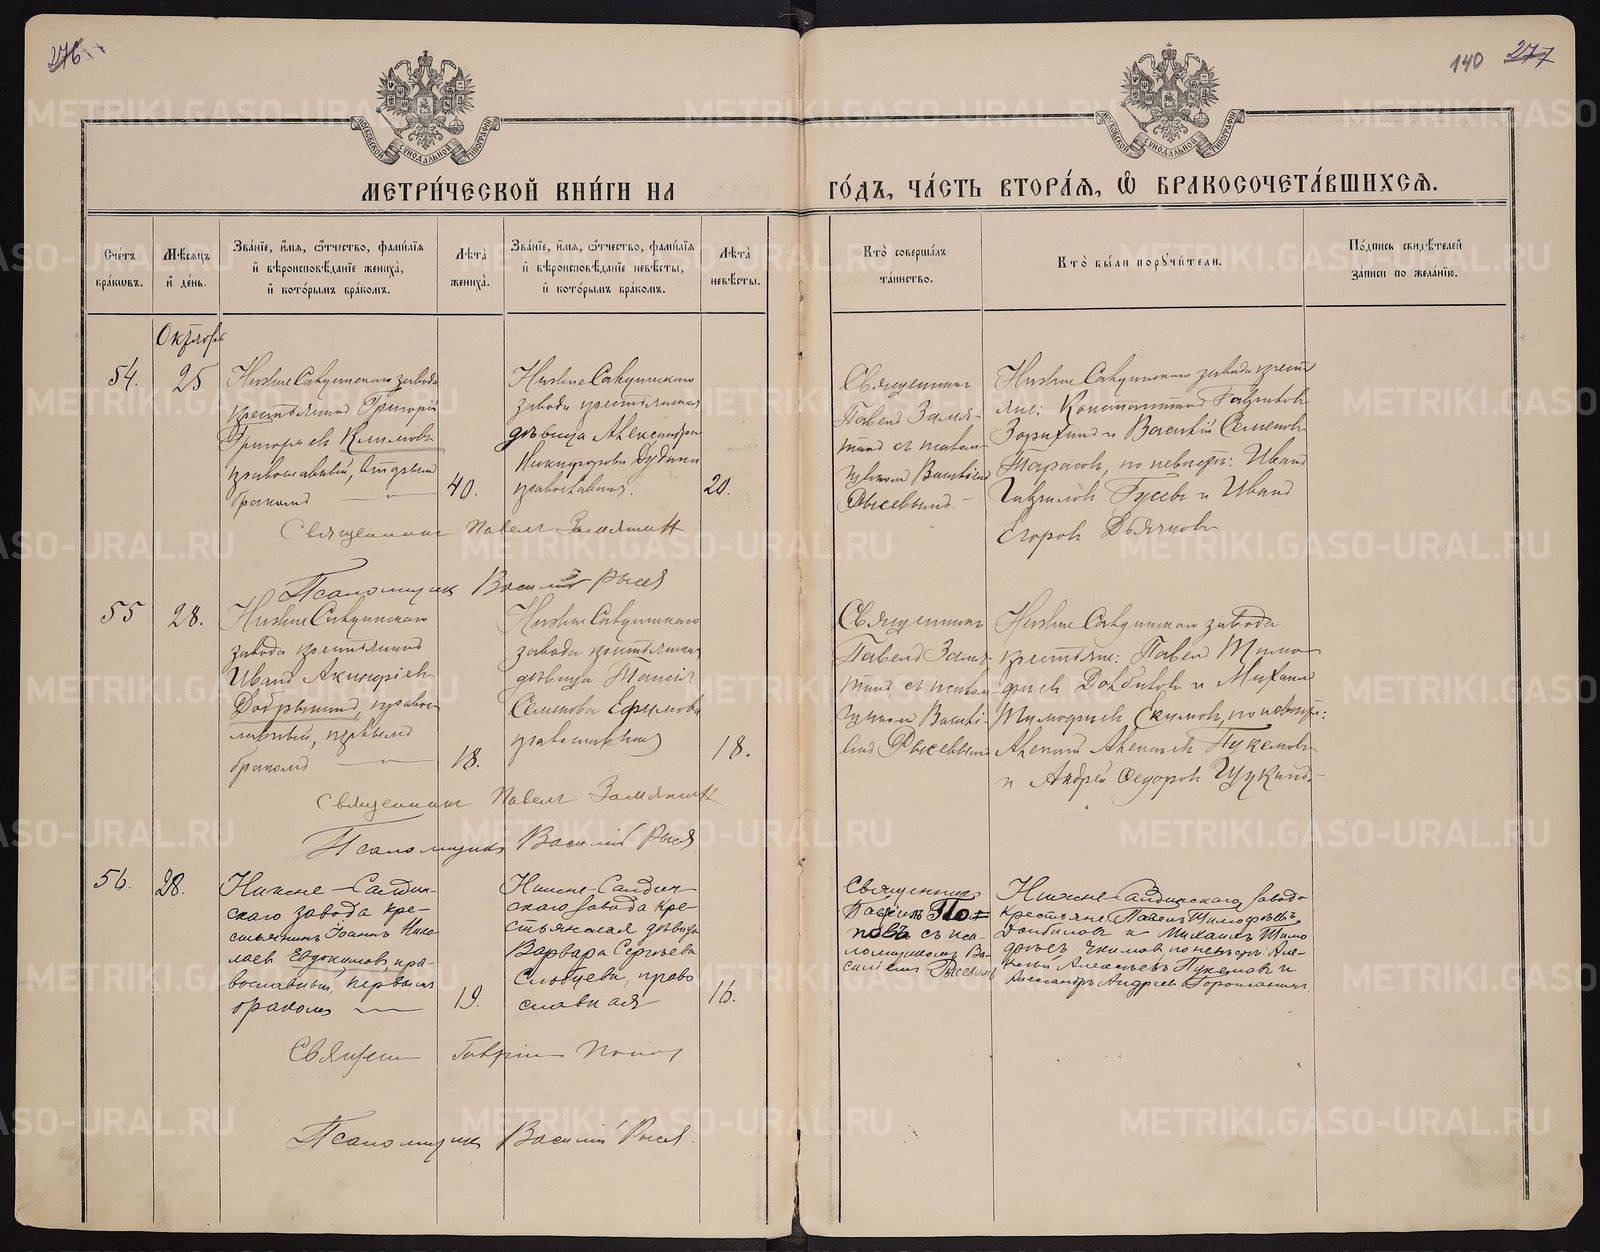 276
140 277
МЕТРИ́ЧЕСКОЙ КНИ́ГИ НА ГО́ДЪ, ЧА́СТЬ ВТОРА́Ѧ, Ѿ БРАКОСОЧЕТА́ВШИХСѦ.
Сче́тъ бра́кѡвъ.
Мѣ́сѧцъ и҆ де́нь.
Зва́нїе, и҆́мѧ, ѻ҆́тчество, фами́лїѧ
и҆ вѣроисповѣ́данїе жениха̀,
и҆ кото́рымъ бра́комъ.
Лѣ́та жениха̀.
Зва́нїе, и҆́мѧ, ѻ҆́тчество, фами́лїѧ
и҆ вѣроисповѣ́данїе невѣ́сты,
и҆ кото́рымъ бра́комъ.
Лѣ́та невѣ́сты.
Кто̀ соверша́лъ та́инство.
Кто̀ бы́ли порꙋчи́тели.
По́дпись свидѣ́телей за́писи по жела́нїю.
Октябрь
54.
25
Нижне Салдинскаго завода
крестьянинъ Григорій
Григорьевъ Климовъ
православный, вторымъ
бракомъ
40.
Нижне Салдинскаго
завода крестьянская
дѣвица Александра
Никифорова Дудина
православная.
20.
Священникъ
Павелъ Замя-
тинъ съ псалом-
щикомъ Василіемъ
Рысевымъ.
Нижне Салдинскаго завода кресть
яне: Константинъ
и Василій Семеновъ
Тарасовъ, по невѣстѣ: Иванъ
Гавриловъ Гусевъ и Иванъ
Егоровъ Дьячковъ
Священникъ Павелъ Замятинъ
Псаломщикъ Василій Рысев
55
28.
Нижне Салдинскаго
завода крестьянинъ
Иванъ
Добрынинъ, право
славный, первымъ
бракомъ
18.
Нижне Салдинскаго
завода крестьянская
дѣвица Таисія
Семенова Ефимова
православная
18.
Священникъ
Павелъ Замя-
тинъ съ псалом
щикомъ Васи-
ліемъ Рысевымъ
Нижне Салдинскаго завода
крестьяне: Павелъ Тимо
феевъ и Михаилъ
Тимофеевъ по невѣстѣ:
и Андрей Федоровъ
Священникъ Павелъ Замятинъ
Псаломщикъ Василій Рысев
56.
28.
Нижне-Салдин-
скаго завода кре-
стьянинъ Іоаннъ Нико
лаевъ Евдокимовъ, пра-
вославный, первымъ
бракомъ
19.
Нижне-Салдин-
скаго завода кре-
стьянская дѣвица
Варвара Сергѣева
право
славная
16.
Священникъ
По=
повъ съ пса-
ломщикомъ Ва-
силіемъ Рысевымъ
Нижне-Салдинскаго завода
крестьяне Павелъ Тимофѣевъ
и Михаилъ Тимо
феевъ по невѣстѣ Але-
ксѣй Алексѣевъ и
Александръ Андреевъ
Священникъ Гавріилъ Попов
Псаломщикъ Василій Рысев.
METRIKI.GASO-URAL.RU